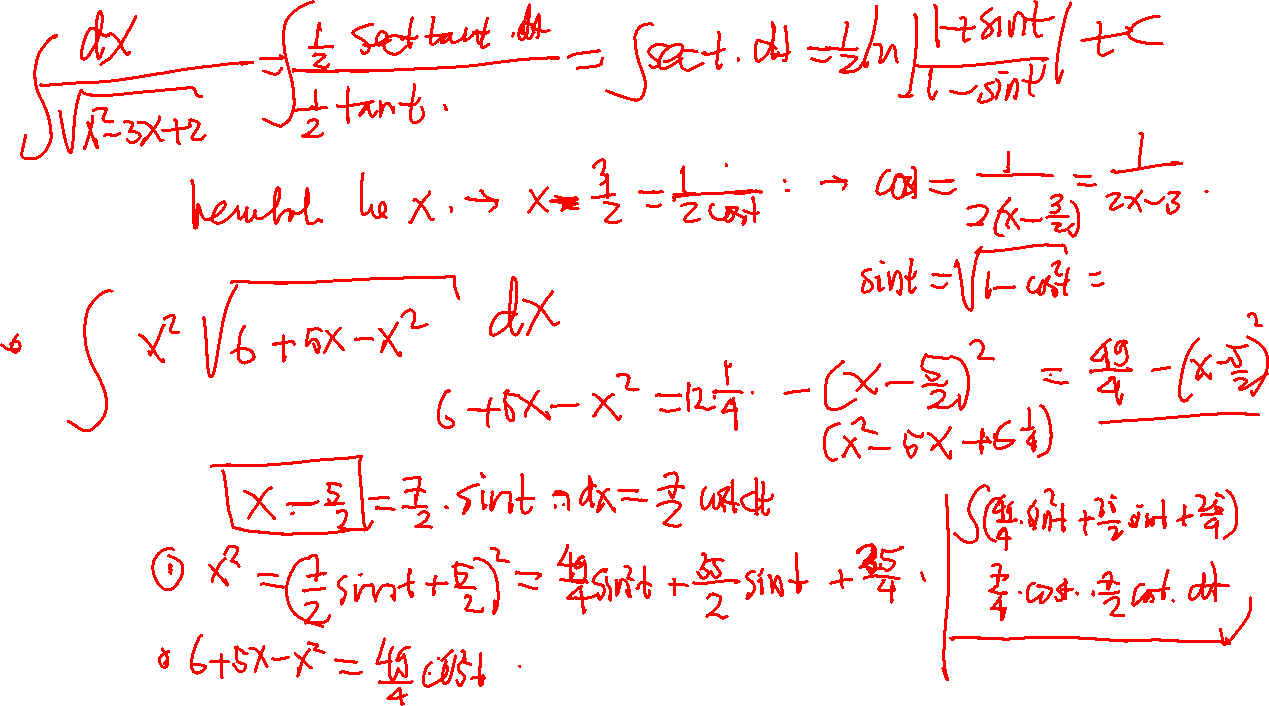 ∫ dx/√(x²-3x+2) = ∫ (1/2 sect tant . dt)/(1/2 tant.) = ∫ sect . dt = 1/2 ln |(1+sint)/(1-sint)| + C
ke x. → x - 3/2 = 1/(2 cost) : → cost = 1/(2(x-3/2)) = 1/(2x-3) .
sint = √(1-cos²t) =
∫ x² √(6+5x-x²) dx
6+5x-x² = 12 1/4 . - (x-5/2)² = 49/4 - (x-5/2)²
(x²-5x+6 1/4)
x - 5/2 = 7/2 . sint → dx = 7/2 cost dt
① x² = (7/2 sint + 5/2)² = 49/4 sin²t + 35/2 sint + 25/4 .
∫(49/4 . sin²t + 35/2 sint + 25/4)
7/4 . cost . 7/2 cost . dt
6+5x-x² = 49/4 cos²t .